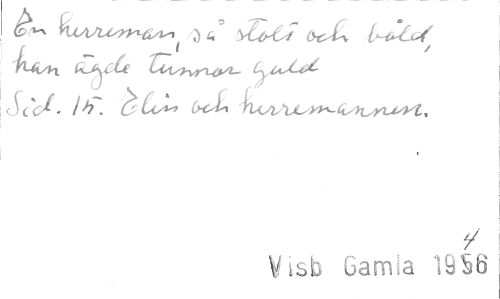 En herreman, så stolt och båld,
han ägde tunnor guld
Sid. 15. Elin och herremannen.
4
Visb Gamla 1956